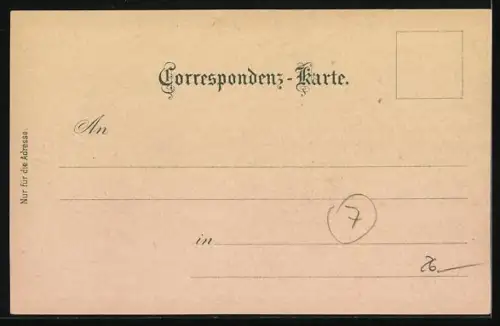 Correspondenz-Karte.
An
Nur für die Adresse.
7
in
26